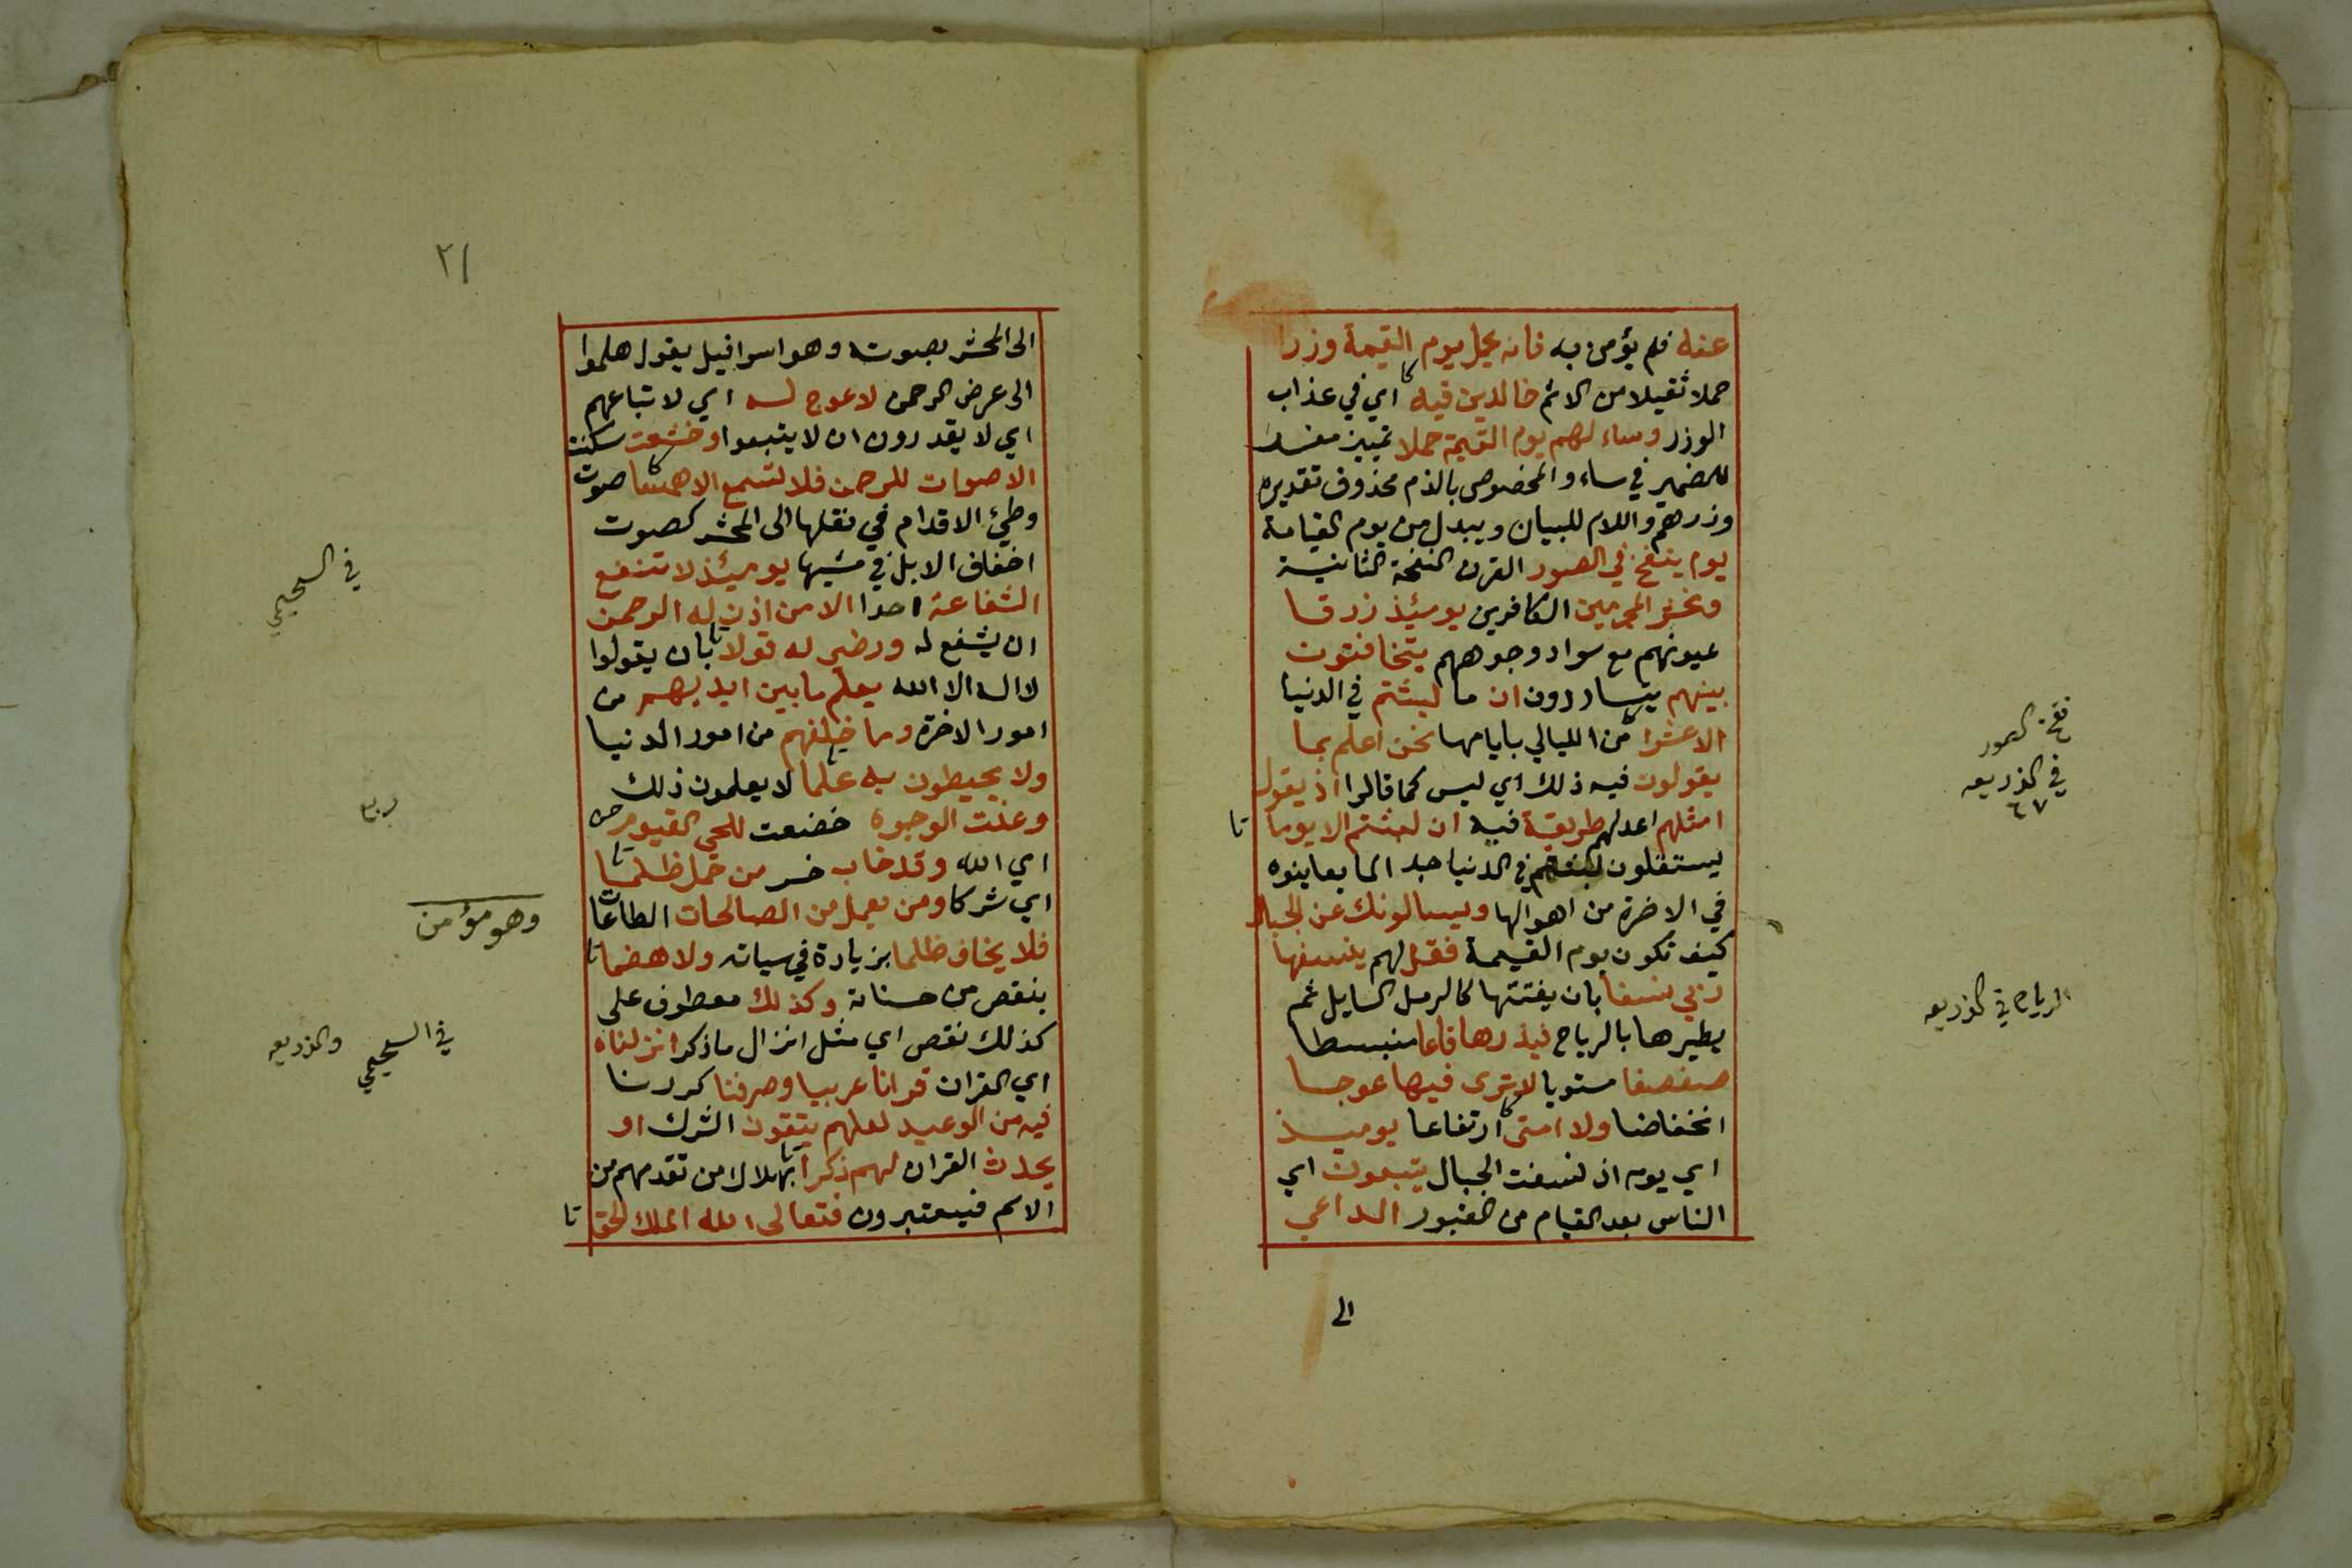 عنه فلم يؤمن به فانه يحمل يوم القيمة وزرا
حملا ثقيلا من الاثم خالدين فيه اي في عذاب
الوزر وساء لهم يوم القيمة حملا تمييز مفسر
للضمير في ساء والمخصوص بالذم محذوف تقديره
وزرهم واللام للبيان ويبدل من يوم القيامة
يوم ينفخ في الصور القرن النفخة الثانية
ونحشر المجرمين الكافرين يومئذ زرقا
عيونهم مع سواد وجوههم يتخافتون
بينهم يتساررون ان ما لبثتم في الدنيا
الا عشرا من الليالي بايامها نحن اعلم بما
يقولون فيه ذلك اي ليس كما قالوا اذ يقول
امثلهم اعدلهم طريقة فيه ان لبثتم الا يوما
يستقلون لبثهم في الدنيا جدا لما يعاينوه
في الاخرة من اهوالها ويسالونك عن الجبال
كيف تكون يوم القيمة فقل لهم ينسفها
ربي نسفا بان يفتتها كالرمل السايل ثم
يطيرها بالرياح فيذرها قاعا منبسطا
صفصفا مستويا لا ترى فيها عوجا
انخفاضا ولا امتى ارتفاعا يوميذ
اي يوم اذ نسفت الجبال يتبعون اي
الناس بعد القيام من القبور الداعي
الى
نفخ الصور
في الذريعه
٦٧
الرياح في الذريعه
٢١
الى المحشر بصوته وهو اسرافيل يقول هلموا
الى عرض الرحمن لا عوج له اي لاتباعهم
اي لا يقدرون ان لا يتبعوا وخشعت سكنت
الاصوات للرحمن فلا تسمع الا همسا صوت
وطئ الاقدام في نقلها الى المحشر كصوت
اخفاف الابل في مشيها يومئذ لا تنفع
الشفاعة احدا الا من اذن له الرحمن
ان يشفع له ورضي له قولا بان يقولوا
لا اله الا الله يعلم ما بين ايديهم من
امور الاخرة وما خلفهم من امور الدنيا
ولا يحيطون به علما لا يعلمون ذلك
وعنت الوجوه خضعت للحي القيوم
اي الله وقد خاب خسر من حمل ظلما
اي شركا ومن يعمل من الصالحات الطاعات
فلا يخاف ظلما بزيادة في سياته ولا هضما
بنقص من حسناته وكذلك معطوف على
كذلك نقص اي مثل انزال ما ذكر انزلناه
اي القران قرانا عربيا وصرفنا كررنا
فيه من الوعيد لعلهم يتقون الشرك او
يحدث القران لهم ذكرا بهلاك من تقدمهم من
الامم فيعتبرون فتعالى الله الملك الحق
في السحيمي
ربع
وهو مؤمن
في السحيمي والذريعه